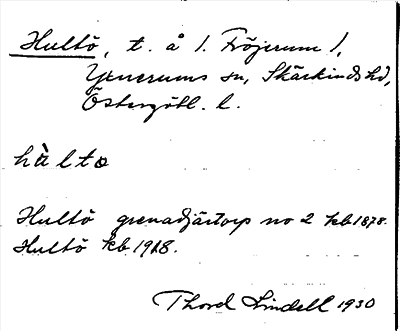 Hultö, t. å /. Fröjerum /,
Yxnerums sn, Skärkinds hd,
Östergötl. l.
hùlto
Hultö grenadjärtorp no 2 kb 1878.
Hultö kb 1918.
Thord Lindell 1930